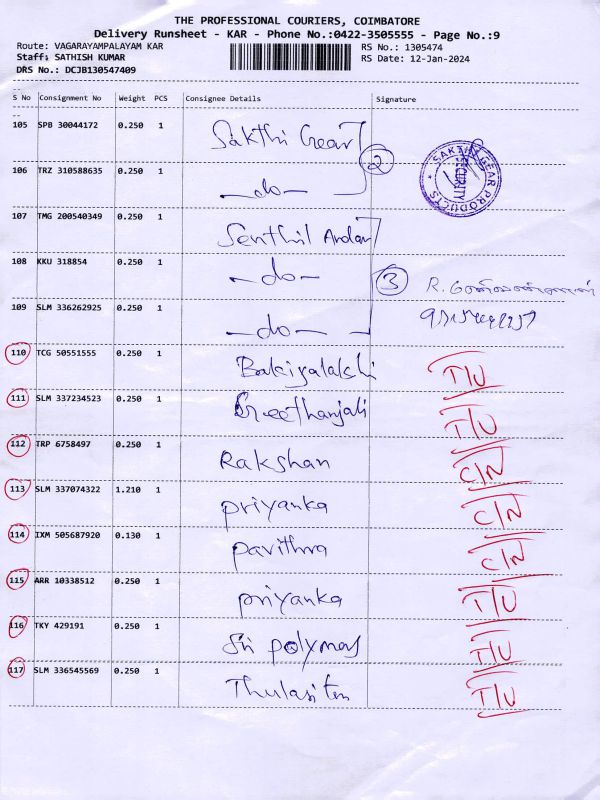 THE PROFESSIONAL COURIERS, COIMBATORE
Delivery Runsheet - KAR - Phone No.:0422-3505555 - Page No.:9
Route: VAGARAYAMPALAYAM KAR RS No.: 1305474
Staff: SATHISH KUMAR RS Date: 12-Jan-2024
DRS No.: DCJB130547409
S No Consignment No Weight PCS Consignee Details Signature
105 SPB 30044172 0.250 1 Sakthi Gear
2 SAKTHI GEAR PRODUCTS SECURITY
106 TRZ 310588635 0.250 1 -do-
107 TMG 200540349 0.250 1 Senthil Andar
108 KKU 318854 0.250 1 -do- 3 R.
109 SLM 336262925 0.250 1 -do-
110 TCG 50551555 0.250 1 Bakiyalakshi T/U
111 SLM 337234523 0.250 1 Greethanjali T/U
112 TRP 6758497 0.250 1 Rakshan C/N
113 SLM 337074322 1.210 1 priyanka C/N
114 IXM 505687920 0.130 1 pavithra C/N
115 ARR 10338512 0.250 1 priyanka T/U
116 TKY 429191 0.250 1 Sri polymers T/U
117 SLM 336545569 0.250 1 T/U